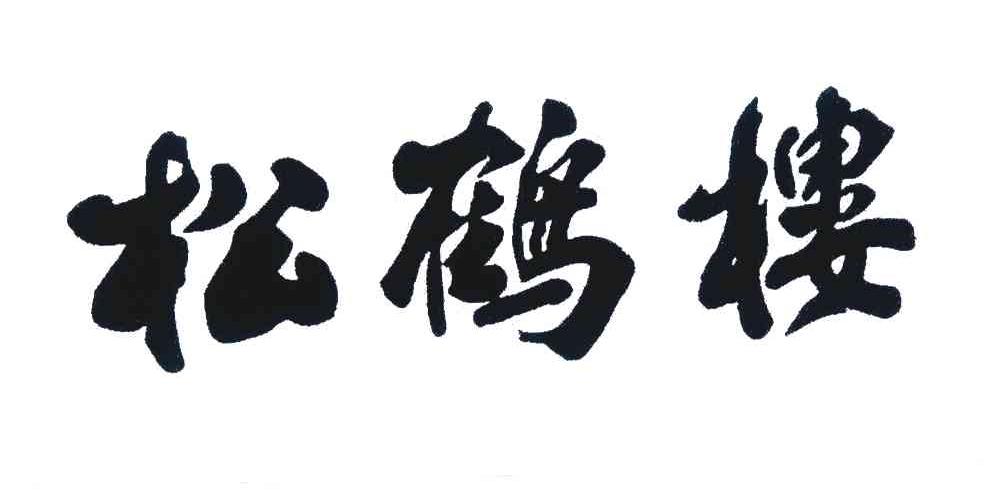 松鶴樓